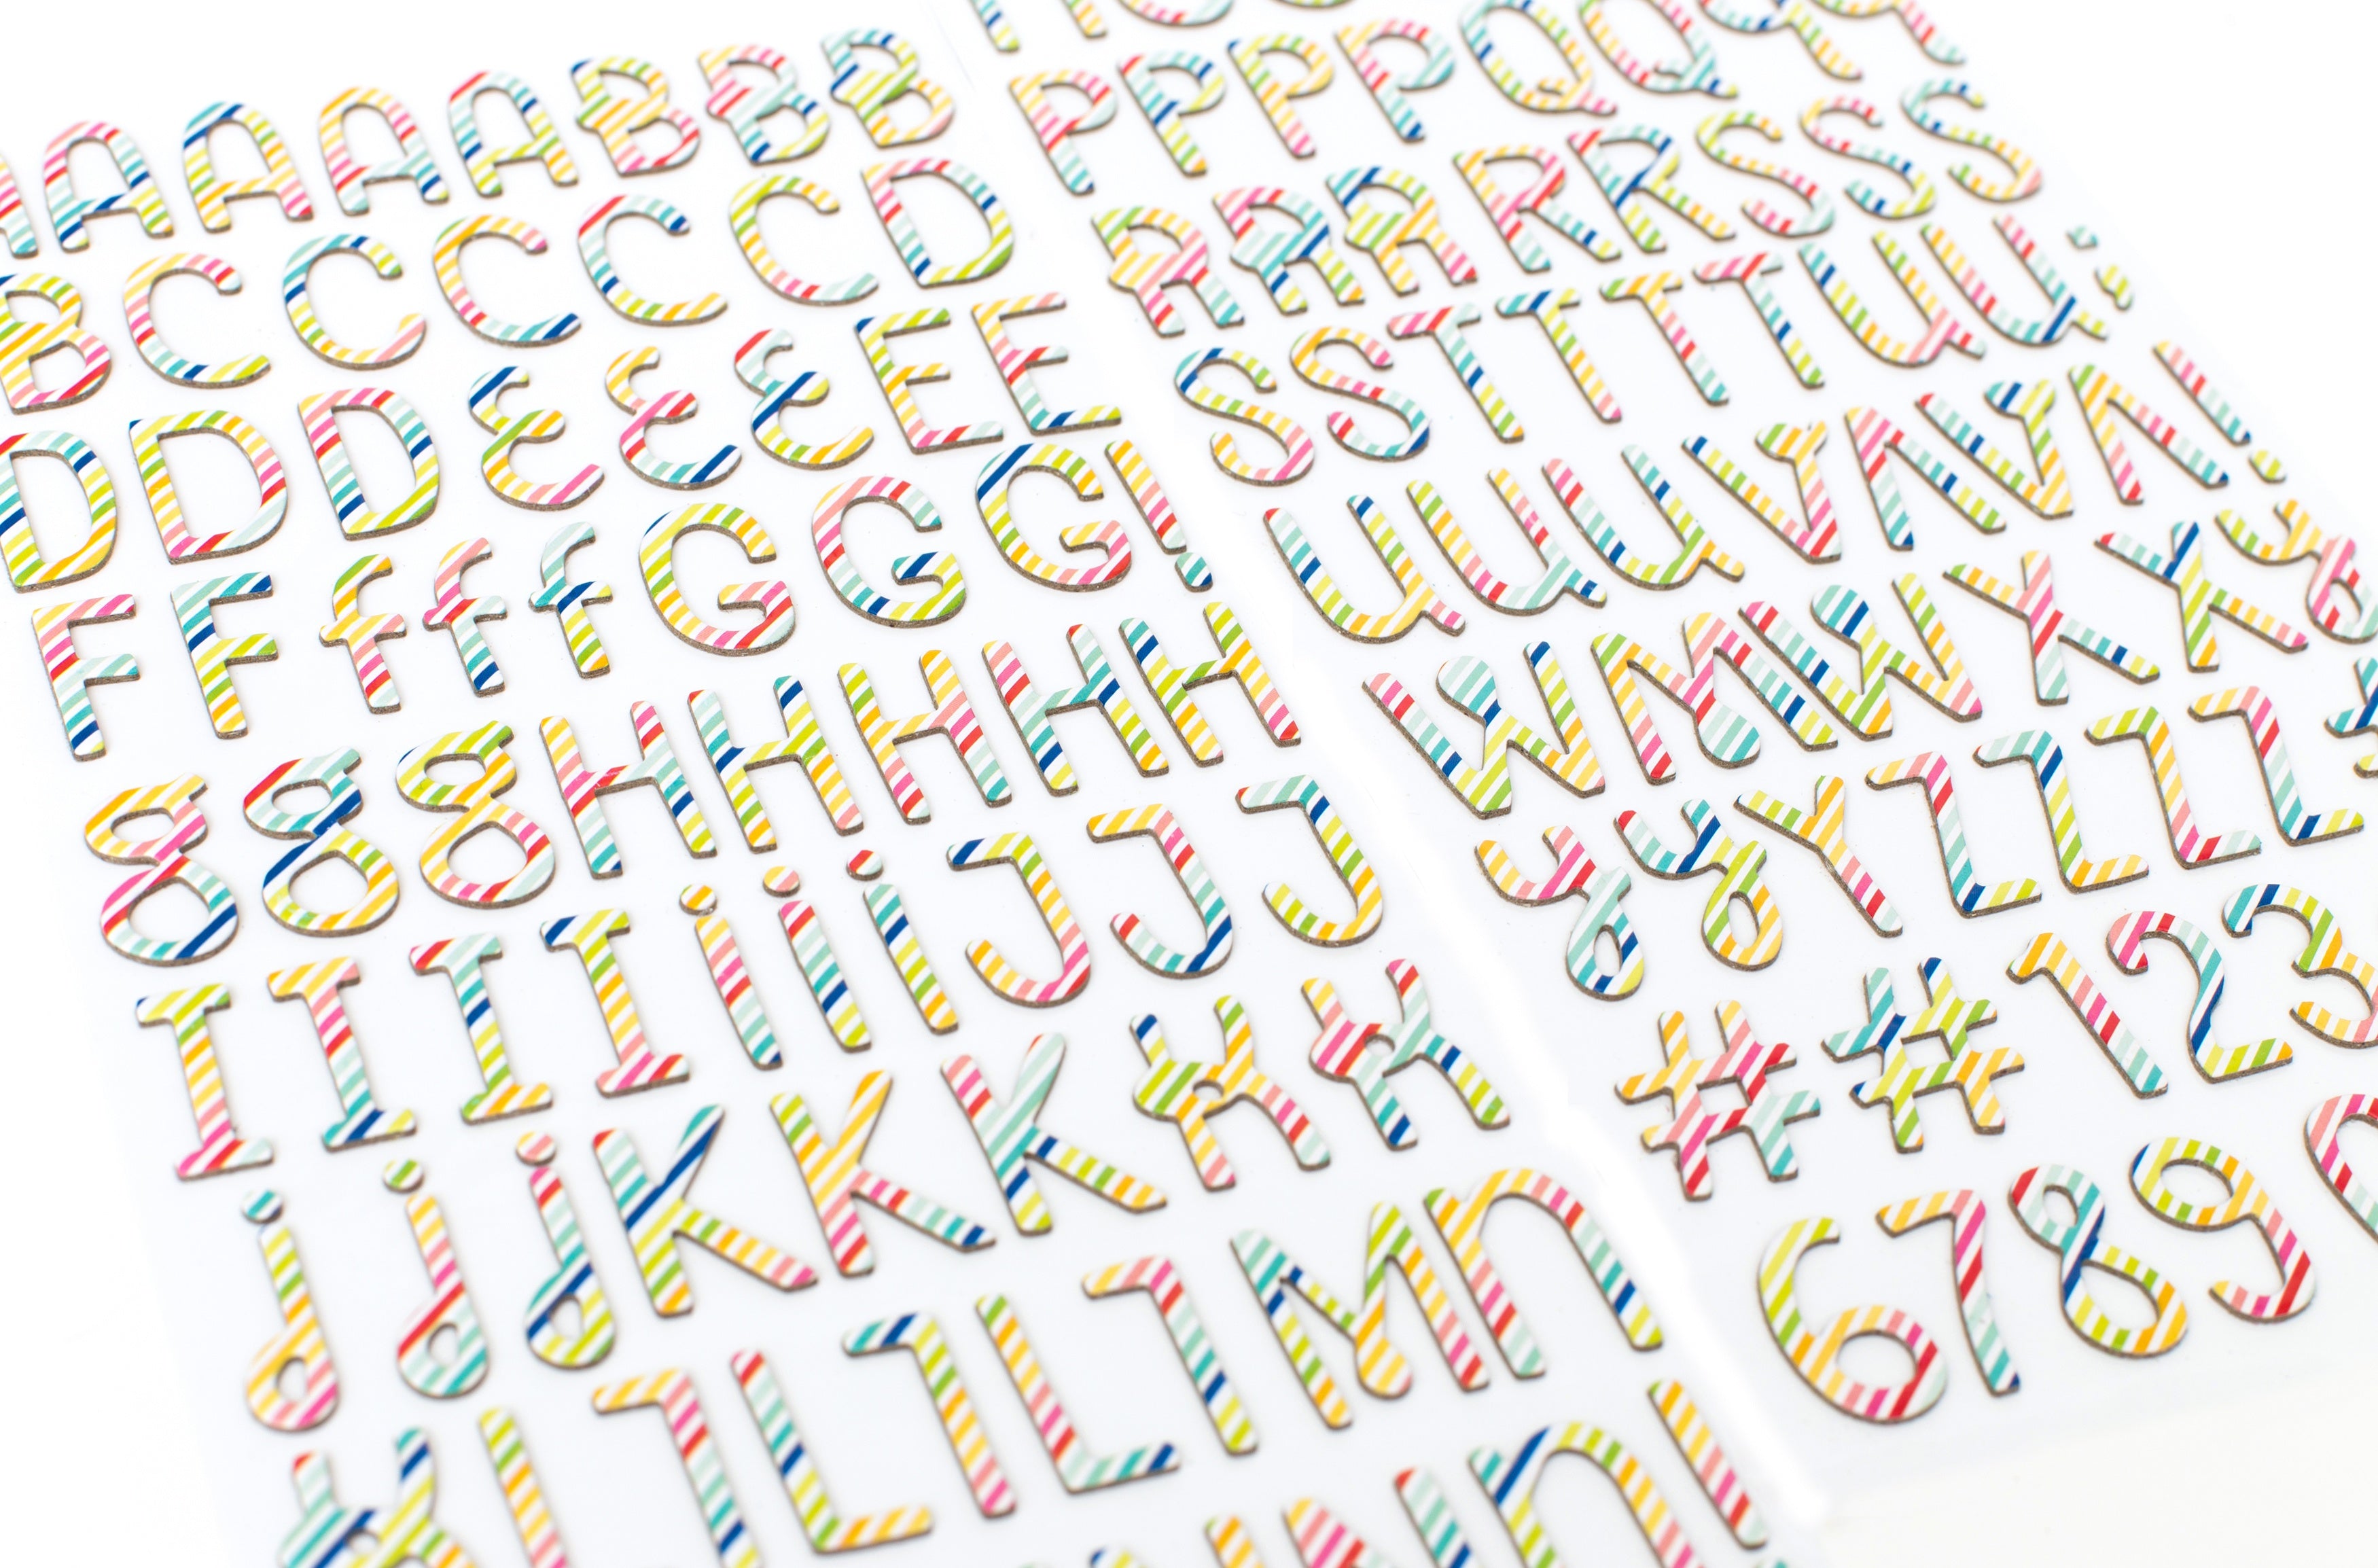 A A A A A B B B
B C C C C C D
D D D E E E E E
F F f f f G G G !
g g g H H H H H
I I I I i i i J J J
j j j K K K K K
K L L L L L L M n
n !
P P P P Q Q
R R R R R S S S
S S T T T T U U
U U U V V V V !
W W W X X y
y y Y Z Z Z Z
# # 1 2 3
6 7 8 9